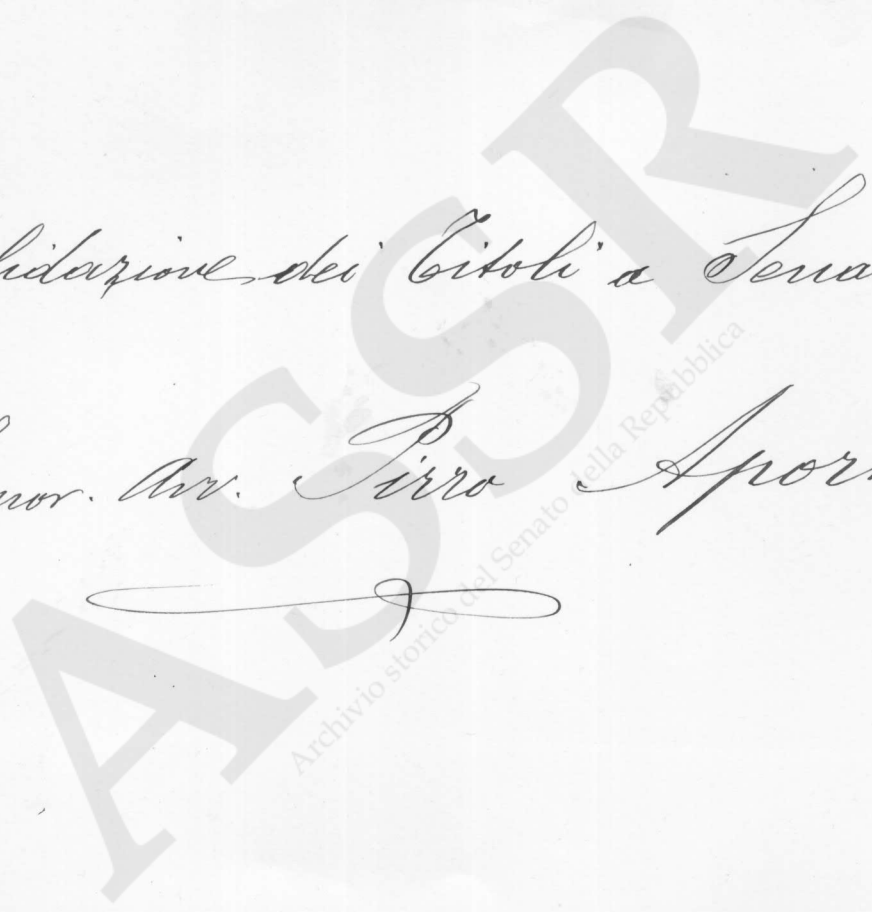 lidazione dei Titoli a Sena
nor. Avv. Pirro Apor
ASSR
Archivio storico del Senato della Repubblica